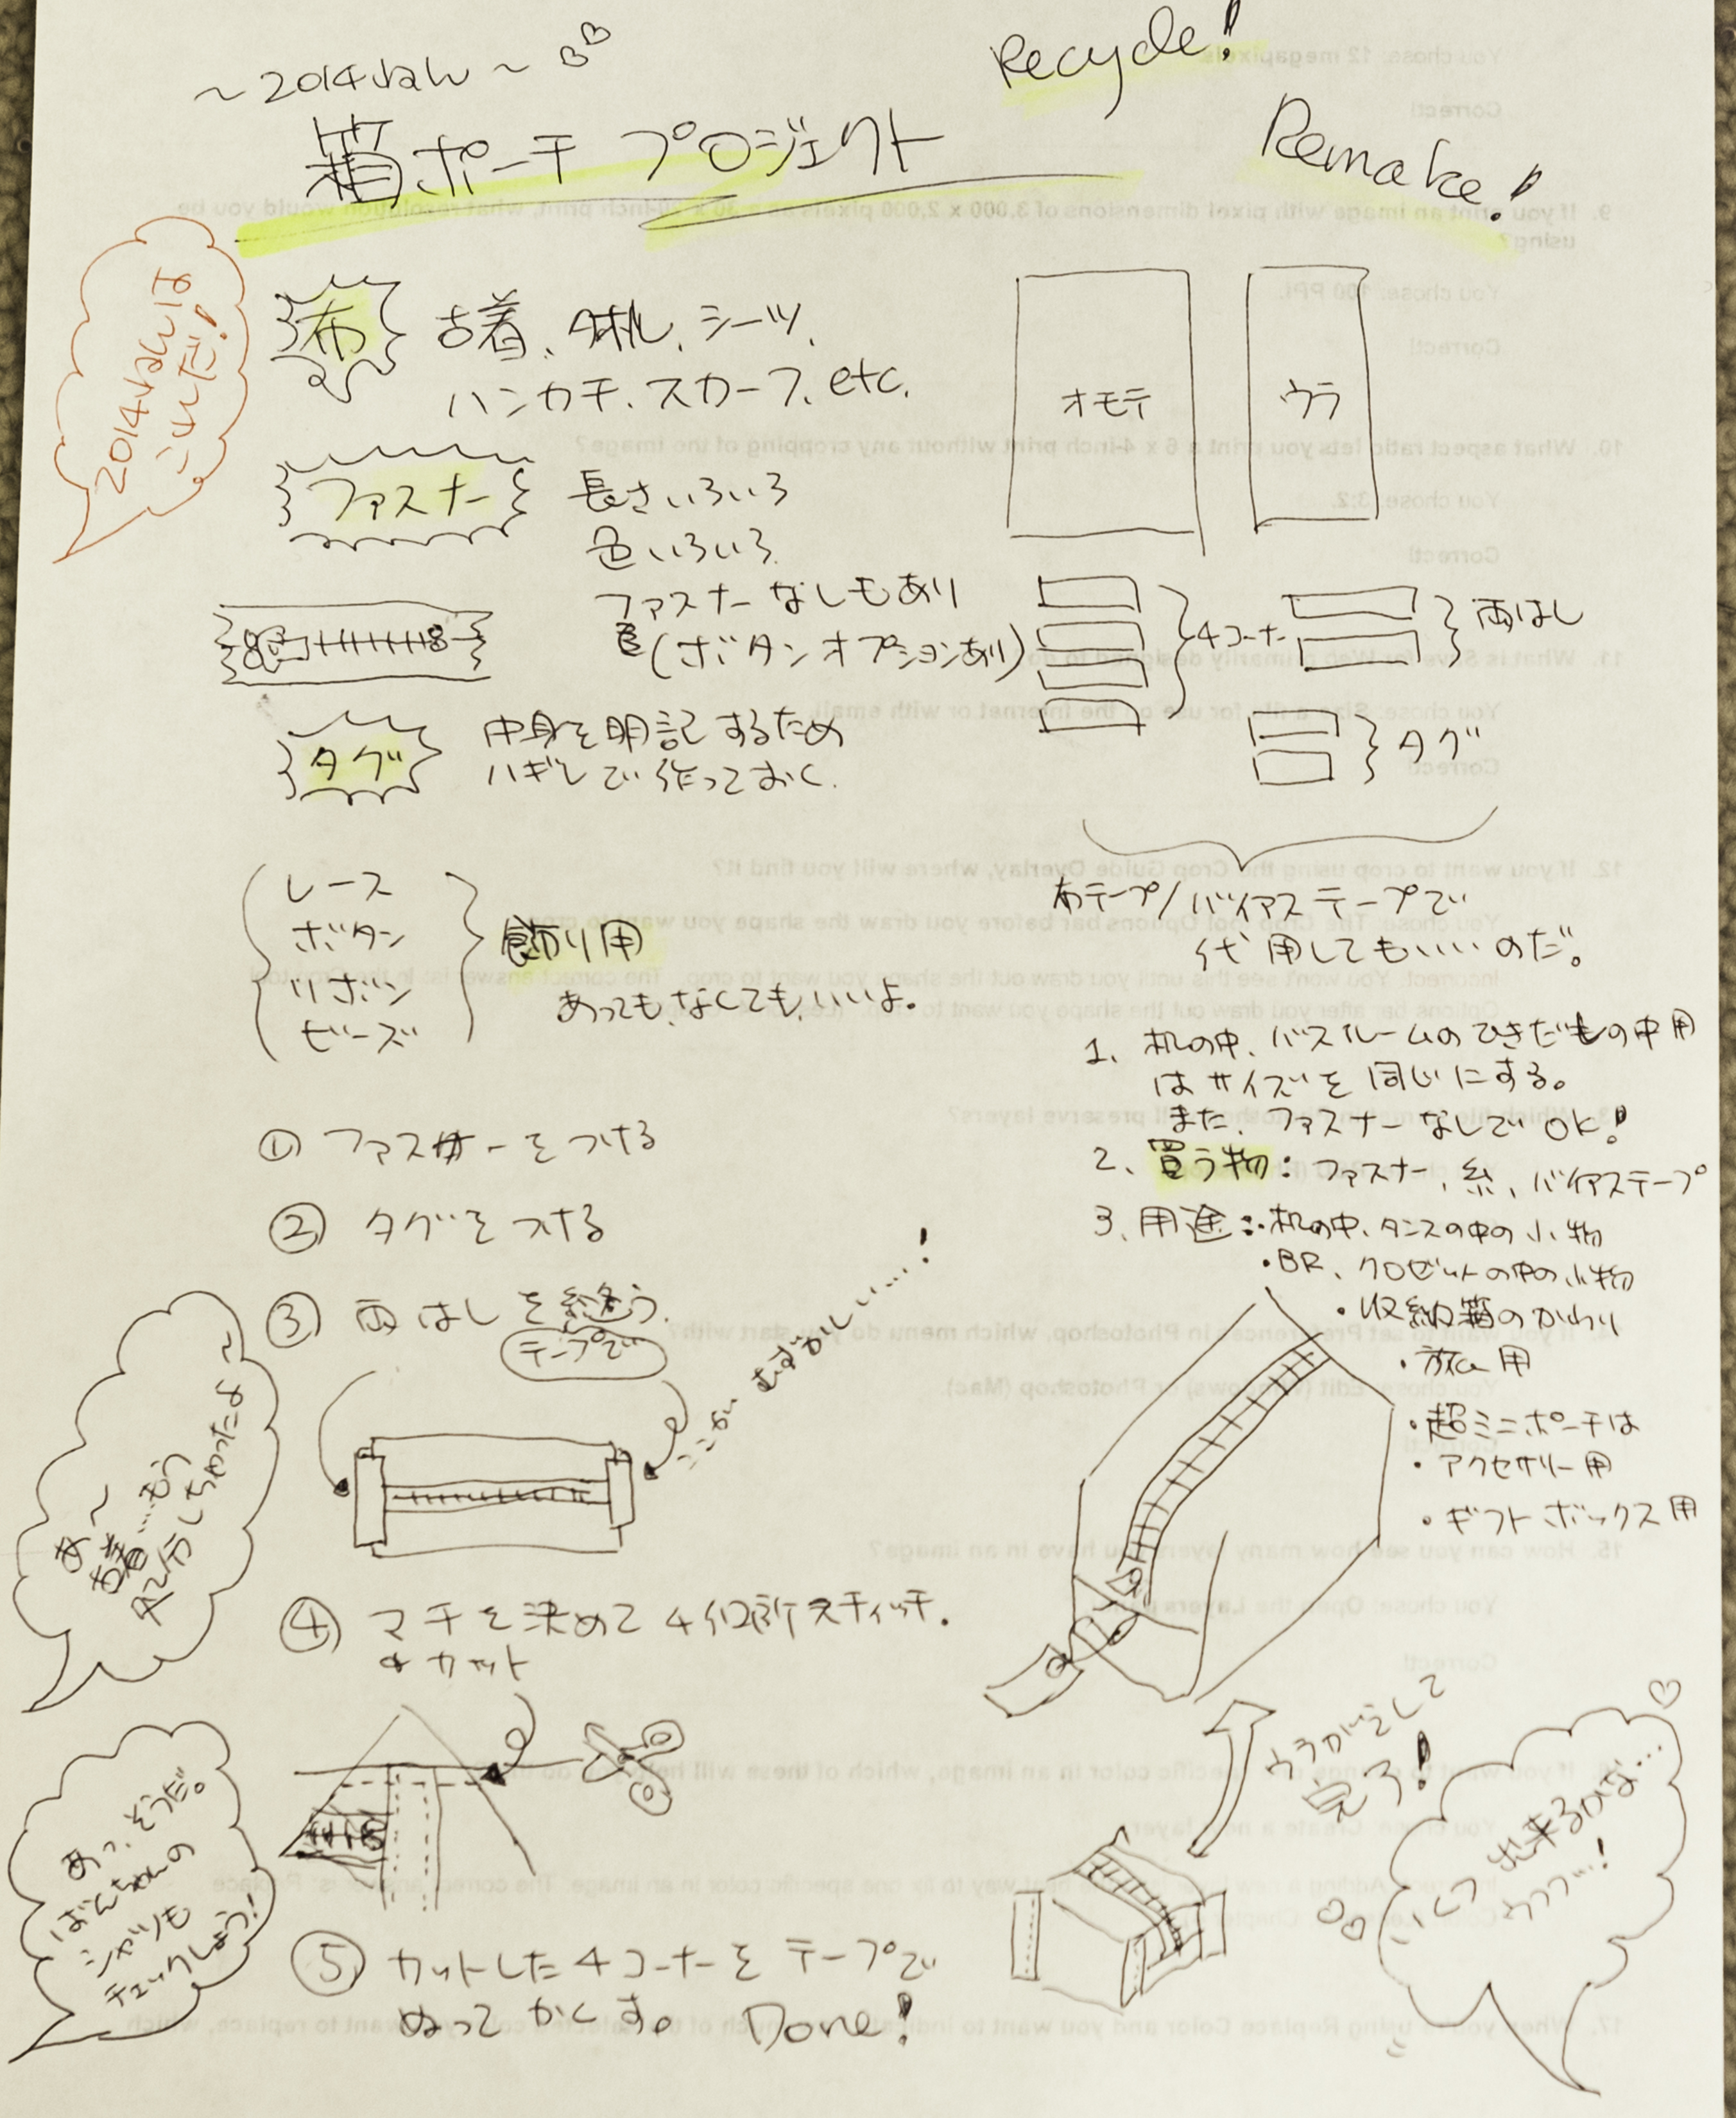 ～2014ねん～
Recycle!
箱ポーチ プロジェクト
Remake!
2014ねんは
これだ!
布
古着、タオル、シーツ、
ハンカチ、スカーフ、etc.
ファスナー
長さいろいろ
色いろいろ
ファスナーなしもあり
(ボタンオプションあり)
タグ
中身を明記するため
ハギレで作っておく.
レース
ボタン
リボン
ビーズ
飾り用
あっても、なくても、いいよ。
オモテ
ウラ
4コーナー
両はし
タグ
布テープ/バイアステープで
代用してもいいのだ。
1、机の中、バスルームのひきだしの中用
はサイズを同じにする。
また、ファスナーなしでOK!
2、買う物:ファスナー、糸、バイアステープ
3、用途:・机の中、タンスの中の小物
・BR、クロゼットの中の小物
・収納箱のかわり
・旅用
・超ミニポーチは
・アクセサリー用
・ギフトボックス用
① ファスナーをつける
② タグをつける
③ 両はしを縫う.
テープで
ここがむずかしい…!
あ〜
もう
しちゃったよ〜
④ マチを決めて4個所スティッチ.
&カット
あっ、そうだ。
ばんちゃんの
シャツも
チェックしよう!
⑤ カットした4コーナーをテープで
ぬってかくす。 Done!
ウラがえして
完了!
いくつ出来るかな…
ウフフ…!